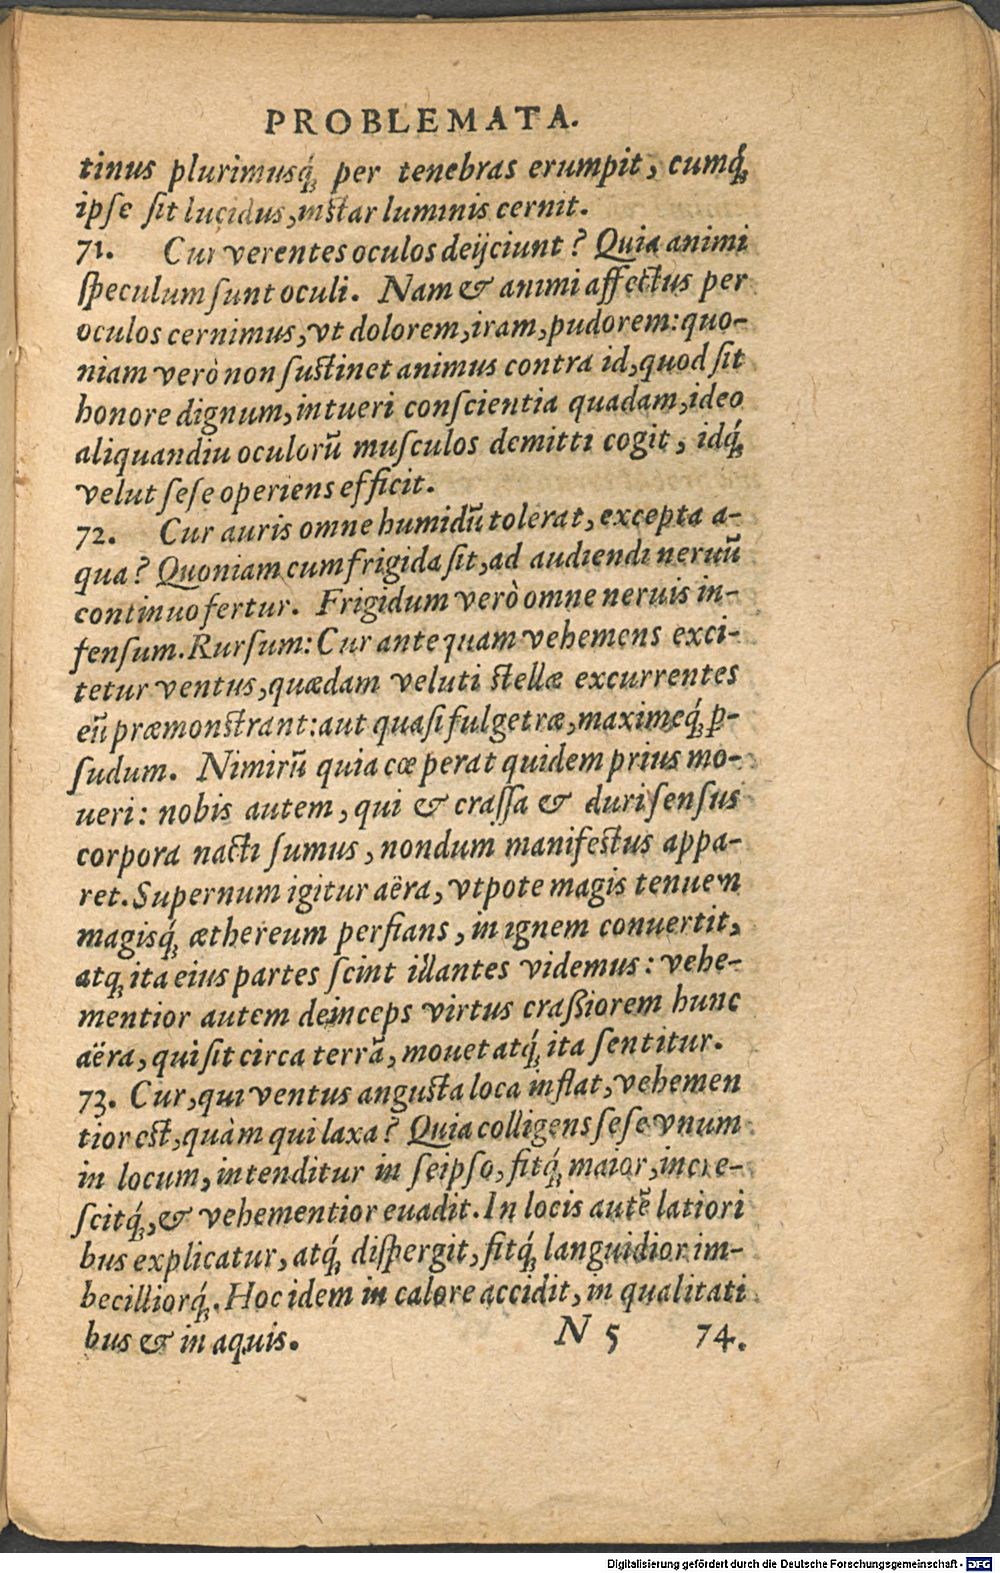 PROBLEMATA.
tinus plurimusq́ꝫ per tenebras erumpit, cumq́ꝫ
ipſe ſit lucidus, instar luminis cernit.
71. Cur verentes oculos deijciunt? Quia animi
ſpeculum ſunt oculi. Nam & animi affectus per
oculos cernimus, vt dolorem, iram, pudorem: quo-
niam verò non ſustinet animus contra id, quod ſit
honore dignum, intueri conſcientia quadam, ideo
aliquandiu oculorũ muſculos demitti cogit, idq́ꝫ
velut ſeſe operiens efficit.
72. Cur auris omne humidũ tolerat, excepta a-
qua? Quoniam cum frigida ſit, ad audiendi neruũ
continuo fertur. Frigidum verò omne neruis in-
fenſum. Rurſum: Cur ante quam vehemens exci-
tetur ventus, quædam veluti stellæ excurrentes
eũ præmonstrant: aut quaſi fulgetræ, maximeq́ꝫ ꝑ-
ſudum. Nimirũ quia cœperat quidem prius mo-
ueri: nobis autem, qui & craſſa & duri ſenſus
corpora nacti ſumus, nondum manifestus appa-
ret. Supernum igitur aëra, vtpote magis tenuem
magisq́ꝫ æthereum perflans, in ignem conuertit,
atqꝫ ita eius partes ſcint illantes videmus: vehe-
mentior autem deinceps virtus craßiorem hunc
aëra, qui ſit circa terrã, mouet atq́ꝫ ita ſentitur.
73. Cur, qui ventus angusta loca inflat, vehemen
tior est, quàm qui laxa? Quia colligens ſeſe vnum
in locum, intenditur in ſeipſo, fitq́ꝫ maior, incre-
ſcitq́ꝫ, & vehementior euadit. In locis autẽ latiori
bus explicatur, atq́ꝫ diſpergit, fitq́ꝫ languidior im-
becilliorq́ꝫ. Hoc idem in calore accidit, in qualitati
bus & in aquis. N 5 74.
Digitalisierung gefördert durch die Deutsche Forschungsgemeinschaft - DFG